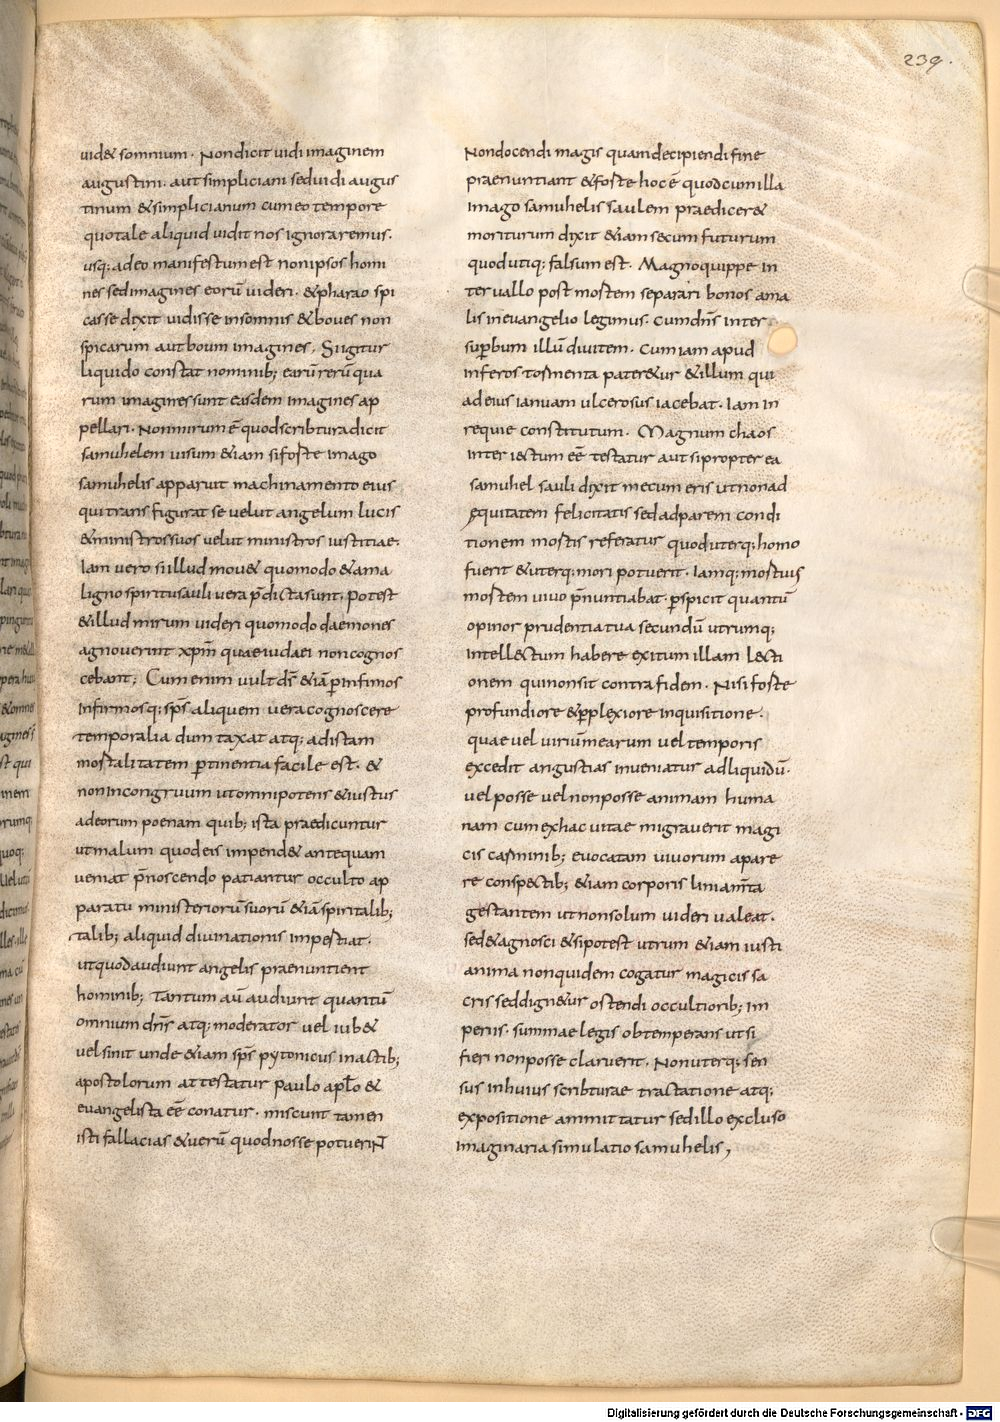 239.
uid& somnium. Non dicit uidi imaginem
augustini. aut simpliciani sed uidi augus
tinum & simplicianum cum eo tempore
quo tale aliquid uidit nos ignoraremus.
usq; adeo manifestum est non ipsos homi
nes sed imagines eorū uideri. & pharao spi
cas se dixit uidisse in somnis & boues non
spicarum aut boum imagines. Si igitur
liquido constat nominib; earū rerū qua
rum imagines sunt easdem imagines ap
pellari. Non mirum ē quod scribtura dicit
samuhelem uisum &iam si forte imago
samuhelis apparuit machinamento eius
qui transfigurat se uelut angelum lucis
& ministros suos uelut ministros iustitiae.
Iam uero si illud mou& quomodo & a ma
ligno spiritu sauli uera p̄dicta sunt; potest
& illud mirum uideri quomodo daemones
agnouerint xp̄m quae iudaei non cognos
cebant; Cum enim uult ds̄ &iā ꝑ infimos
infirmosq; sp̄s aliquem uera cognoscere
temporalia dum taxat atq; ad istam
mortalitatem ꝑtinentia facile est. &
non incongruum ut omnipotens & iustus
ad eorum poenam quib; ista praedicuntur
ut malum quod eis impend& antequam
ueniat p̄noscendo patiantur occulto ap
paratu ministeriorū suorū &iā spiritalib;
talib; aliquid diuinationis impertiat.
ut quod audiunt angelis praenuntient
hominib; Tantum aū audiunt quantū
omnium dn̄s atq; moderator uel iub&
uel sinit unde &iam sp̄s pytonicus in actib;
apostolorum attestatur paulo apłō &
euangelista ēē conatur. miscunt tamen
isti fallacias & uerū quod nosse potuerint
Non docendi magis quam decipiendi fine
praenuntiant & forte hoc ē quod cum illa
imago samuhelis saulem praedicer&
moriturum dixit &iam secum futurum
quod utiq; falsum est. Magno quippe in
teruallo post mortem separari bonos a ma
lis in euangelio legimus. Cum dn̄s inter
suꝑbum illū diuitem. Cum iam apud
inferos tormenta pater&ur & illum qui
ad eius ianuam ulcerosus iacebat. Iam in
requie constitutum. Magnum chaos
inter iectum ēē testatur aut si propter ea
samuhel sauli dixit mecum eris ut non ad
ęquitatem felicitatis sed ad parem condi
tionem mortis referatur quod uterq; homo
fuerit & uterq; mori potuerit. Iamq; mortuus
mortem uiuo p̄nuntiabat. ꝑspicit quantū
opinor prudentia tua secundū utrumq;
intellectum habere exitum illam lecti
onem qui non sit contra fidem. Nisi forte
profundiore & ꝑplexiore inquisitione.
quae uel uiriū mearum uel temporis
excedit angustias inueniatur ad liquidū.
uel posse uel non posse animam huma
nam cum ex hac uitae migrauerit magi
cis carminib; euocatam uiuorum apare
re conspectib; &iam corporis liniam̄ta
gestantem ut non solum uideri ualeat.
sed & agnosci & si potest utrum &iam iusti
anima non quidem cogatur magicis sa
cris sed dign&ur ostendi occultiorib; im
periis. summae legis obtemperans ut si
fieri non posse claruerit. Non uterq; sen
sus in huius scribturae tractatione atq;
expositione ammittatur sed illo excluso
imaginaria simulatio samuhelis,
Digitalisierung gefördert durch die Deutsche Forschungsgemeinschaft - DFG